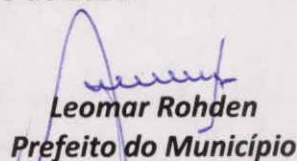 Leomar Rohden
Prefeito do Município